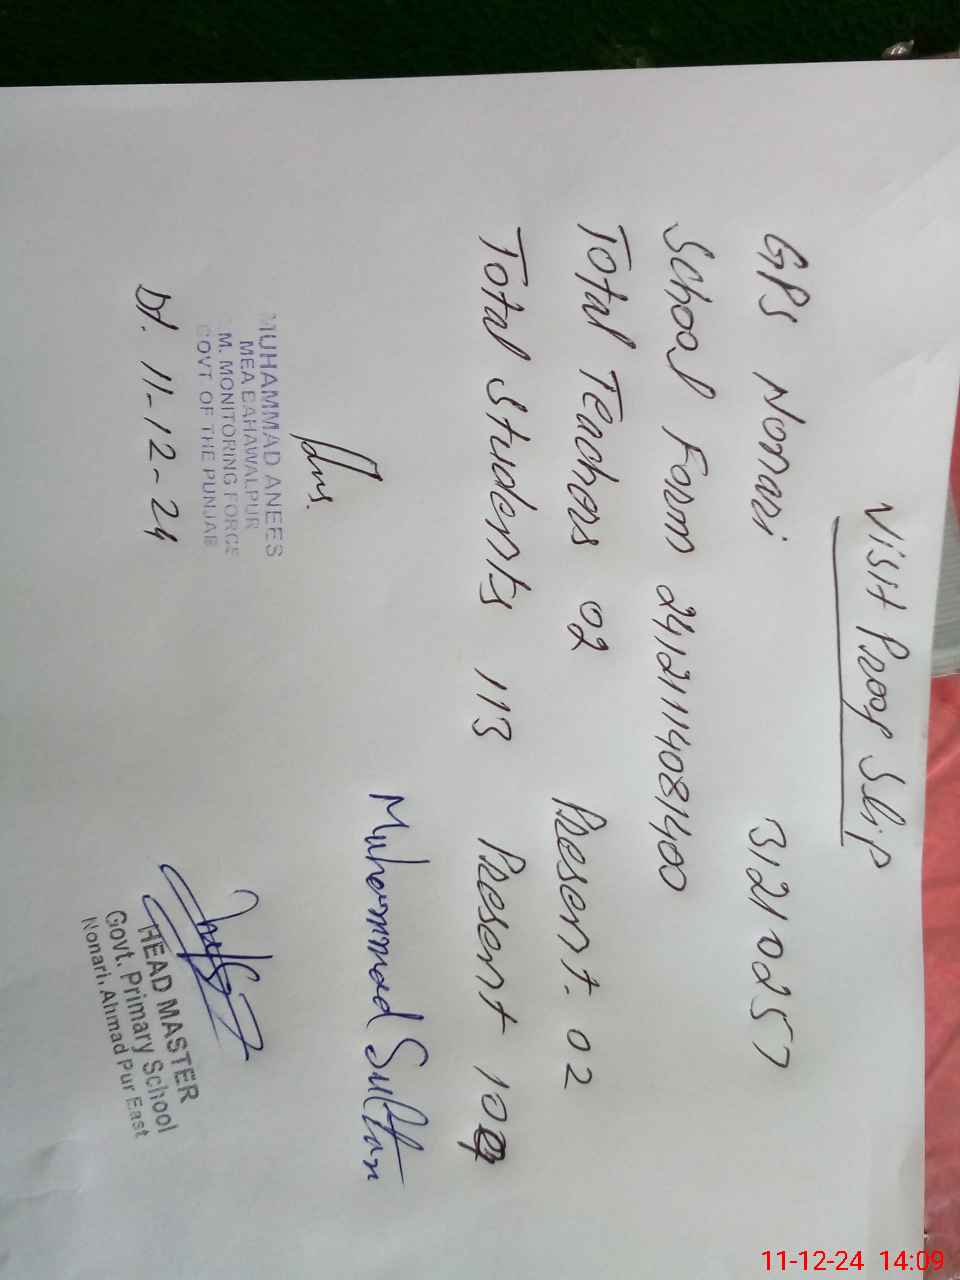 Visit Proof Slip
GPS Nonari 31210257
School Form 24121114081400
Total Teachers 02 Present. 02
Total Students 113 Present
Muhammad Sultan
MUHAMMAD ANEES
MEA BAHAWALPUR
M. MONITORING FORCE
GOVT OF THE PUNJAB
Dt. 11-12-24
HEAD MASTER
Govt. Primary School
Nonari, Ahmad Pur East
11-12-24 14:09